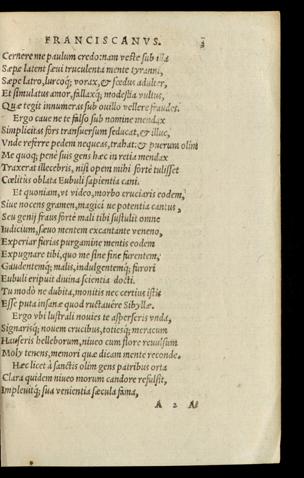 FRANCISCANVS. 3
Cernere me paulum credo: nam veste sub illa
Sæpe latent sæui truculenta mente tyranni,
Sæpe latro, lurcoq́; vorax, & fœdus adulter,
Et simulatus amor, fallaxq́; modestia vultus,
Quæ tegit innumeras sub ouillo vellere fraudes.
Ergo caue ne te falso sub nomine mendax
Simplicitas fors transuersum seducat, & illuc,
Vnde referre pedem nequeas, trahat: & puerum olim
Me quoq; penè suis gens hæc in retia mendax
Traxerat illecebris, nisi opem mihi fortè tulisset
Cœlitus oblata Eubuli sapientia cani.
Et quoniam, vt video, morbo cruciaris eodem,
Siue nocens gramen, magici ue potentia cantus,
Seu genij fraus fortè mali tibi sustulit omne
Iudicium, sæuo mentem excantante veneno,
Experiar furias purgamine mentis eodem
Expugnare tibi, quo me sine fine furentem,
Gaudentemq́; malis, indulgentemq́; furori
Eubuli eripuit diuina scientia docti.
Tu modò ne dubita, monitis nec certius istis
Esse puta insanæ quod ructauêre Sibyllæ.
Ergo vbi lustrali nouies te asperseris vnda,
Signarisq́; nouem crucibus, totiesq́; meracum
Hauseris helleborum, niueo cum flore reuulsum
Moly tenens, memori quæ dicam mente reconde.
Hæc licet à sanctis olim gens patribus orta
Clara quidem niueo morum candore refulsit,
Impleuitq́; sua venientia sæcula fama,
A 2 At